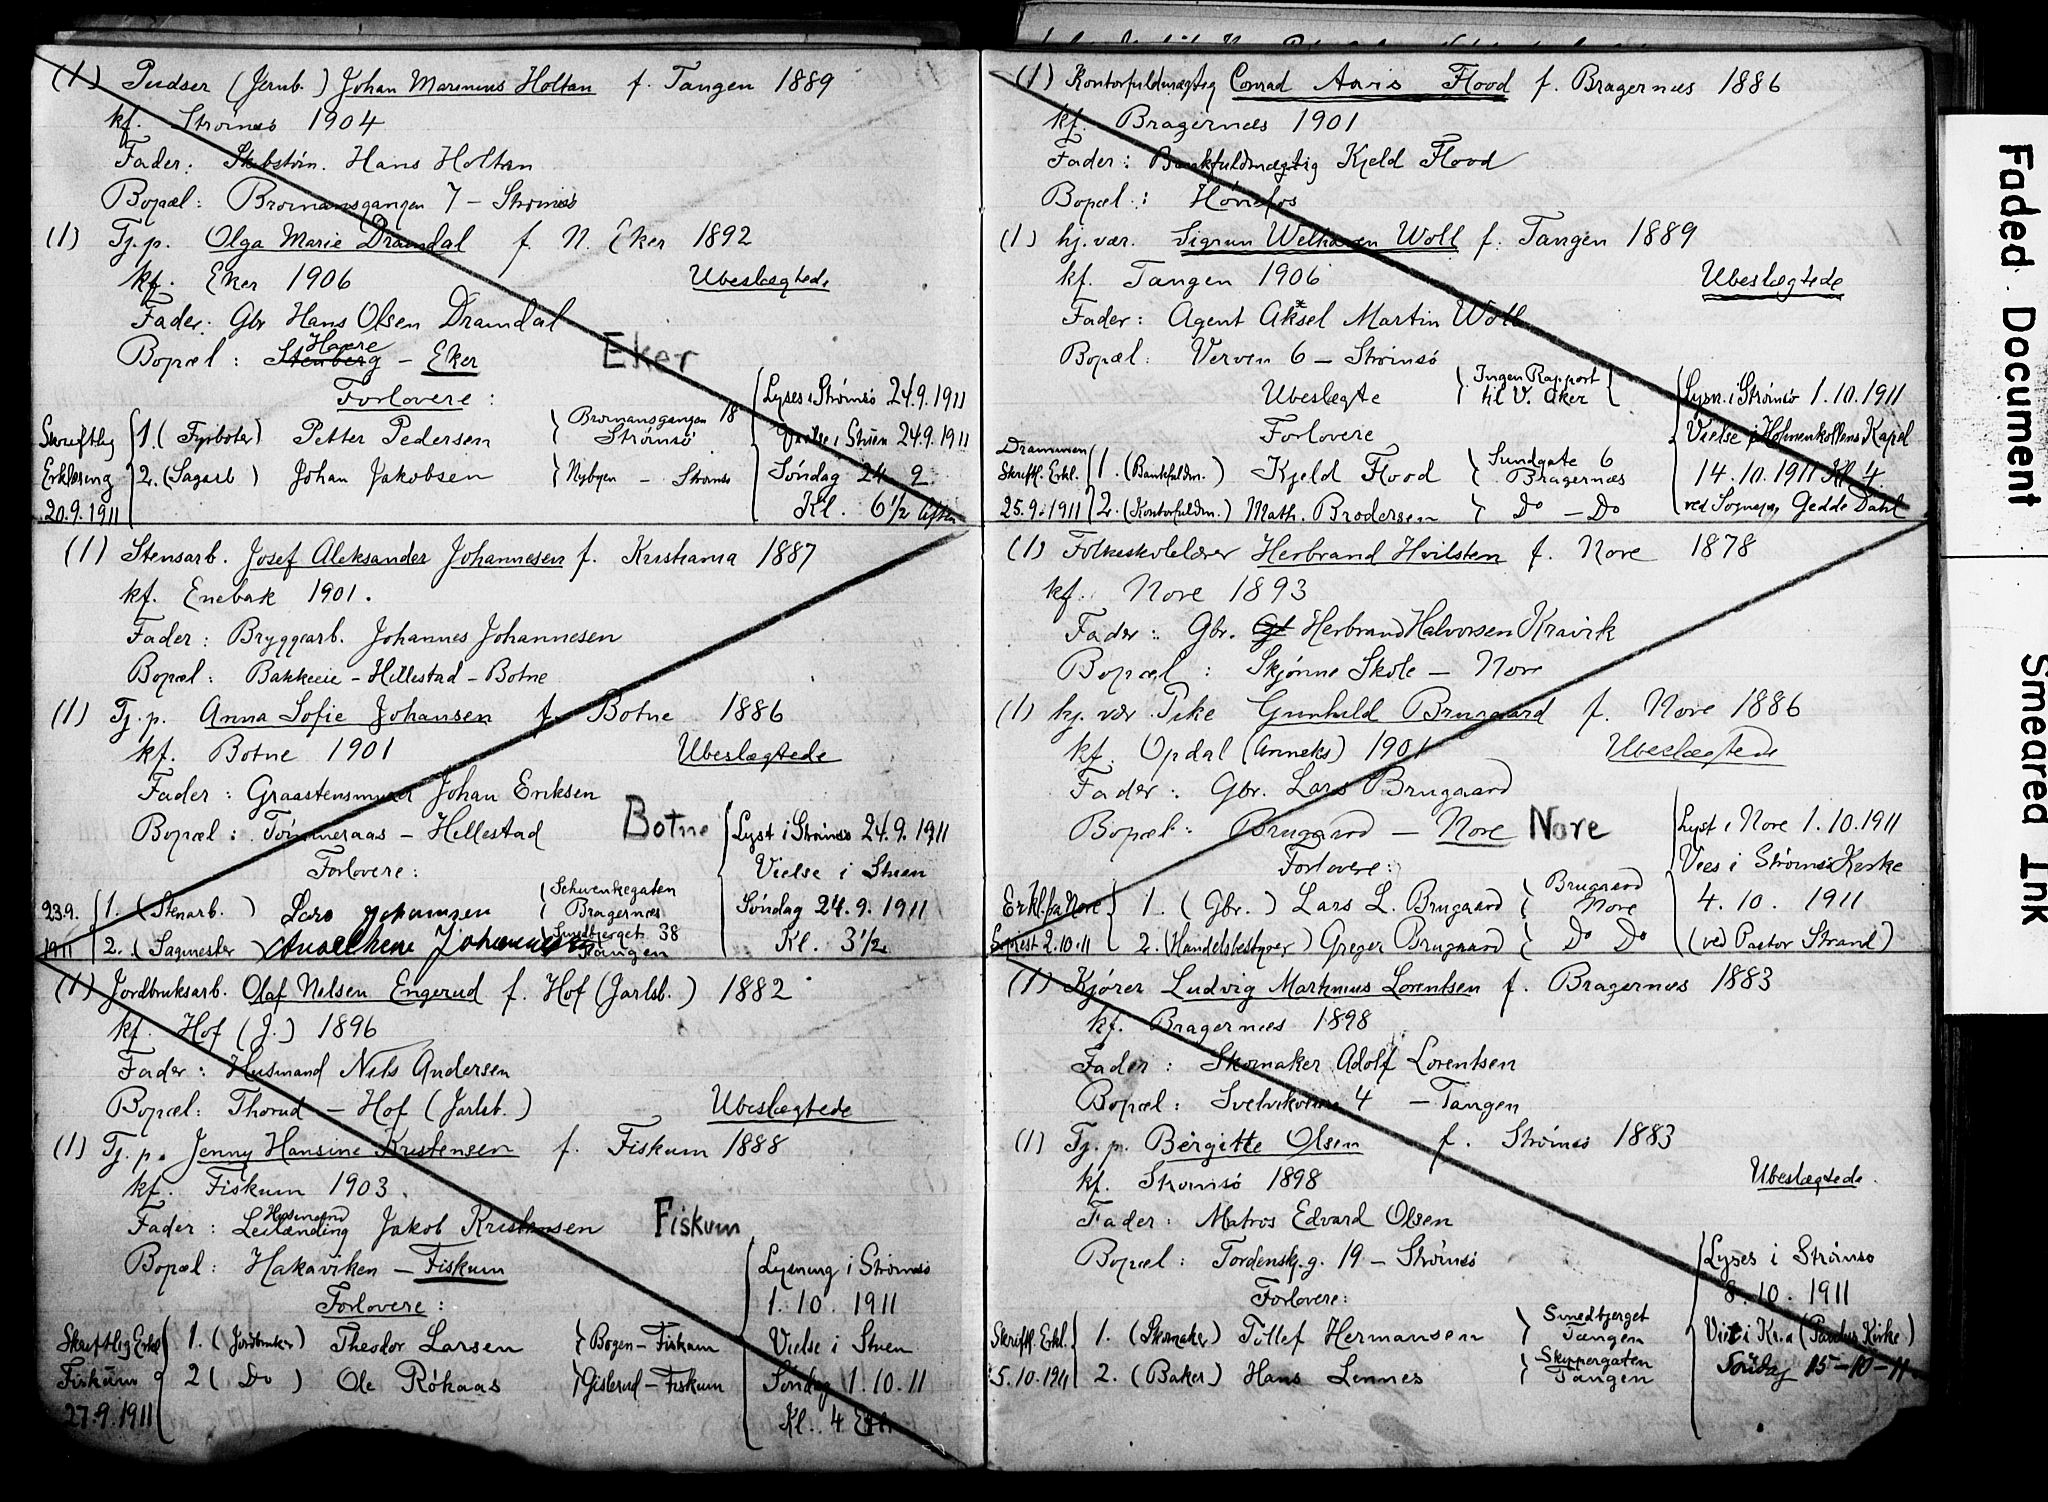 (1) Pudser (Jernb.) Johan Marinius Holtan f. Tangen 1889
kf. Strømsø 1904
Fader: Skibstøm. Hans Holtan
Bopæl: Bromansgangen 7 – Strømsø
(1) Tj. p. Olga Marie Dramdal f. N. Eker 1892
kf. Eker 1906 Ubeslægtede
Fader: Gbr Hans Olsen Dramdal
Haere
Bopæl: Stenberg – Eker Eker
Forlovere:
Skriftlig Erklæring 20.9.1911
1. (Fyrbøter) Petter Pedersen Bromansgangen 18 Strømsø
2. (Sagarb) Johan Jakobsen Nybyen – Strømsø
Lyses i Strømsø 24.9.1911
Vielse i Stuen 24.9.1911
Søndag 24 9.
Kl. 6 1/2 Aften
(1) Stensarb. Josef Aleksander Johannesen f. Kristiania 1887
kf. Enebak 1901.
Fader: Bryggearb. Johannes Johannesen
Bopæl: Bakkeeie – Hillestad – Botne
(1) Tj. p. Anna Sofie Johansen f. Botne 1886
kf. Botne 1901 Ubeslægtede
Fader: Graastensmurer Johan Eriksen
Bopæl: Tømmeraas – Hillestad Botne
Forlovere:
23.9. 1911
1. (Stenarb.) Lars Johannsen Schwenkegaten Bragernæs
2. (Sagmester) Johannesen Sundbjerget 38 Tangen
Lyst i Strømsø 24.9.1911
Vielse i Stuen
Søndag 24.9.1911
Kl. 3 1/2
(1) Jordbruksarb. Olaf Nilsen Engerud f. Hof (Jarlsb.) 1882
kf. Hof (J.) 1896
Fader: Husmand Nils Andersen
Bopæl: Thorud – Hof (Jarlsb.) Ubeslægtede
(1) Tj. p. Jenny Hansine Kristensen f. Fiskum 1888
kf. Fiskum 1903.
Husmand
Fader: Leilænding Jakob Kristensen Fiskum
Bopæl: Hakaviken – Fiskum
Forlovere:
Skriftlig Erkl Fiskum 27.9.1911
1. (Jordbruker) Theodor Larsen Bogen – Fiskum
2 (Do) Ole Røkaas Gislerud – Fiskum
Lysning i Strømsø
1. 10. 1911
Vielse i Stuen
Søndag 1.10.11
Kl. 4 Eft.
(1) Kontorfuldmægtig Conrad Arvis Flood f. Bragernæs 1886
kf. Bragernæs 1901
Fader: Bankfuldmægtig Kjeld Flood
Bopæl: Hønefos
(1) hj. vær. Sigrun Welhaven Woll f. Tangen 1889
kf. Tangen 1906 Ubeslægtede
Fader: Agent Aksel Martin Woll
Bopæl: Verven 6 – Strømsø
Ubeslægte Ingen Rapport til V. Aker
Forlovere
Drammen Skriftl. Erkl. 25.9.1911
1. (Bankfuldm.) Kjeld Flood Sundgate 6 Bragernæs
2. (Kontorfuldm.) Math. Brodersen Do – Do
Lysn. i Strømsø 1.10.1911
Vielse i Holmenkollens Kapel
14.10.1911 Kl 4.
ved Sognepr. Gedde Dahl
(1) Folkeskolelærer Herbrand Hvilsten f. Nore 1878
kf. Nore 1893
Fader: Gbr. Herbrand Halvorsen Kravik
Bopæl: Skjønne Skole – Nore
(1) hj. vær Pike Gunhild Brugaard f. Nore 1886
kf. Opdal (Anneks) 1901 Ubeslægtede
Fader: Gbr. Lars Brugaard
Bopæl: Brugaard – Nore Nore
Forlovere:
Erkl. fra Nore 2.10.11
1. (Gbr.) Lars L. Brugaard Brugaard Nore
2. (Handelsbestyrer) Greger Brugaard Do Do
Lyst i Nore 1.10.1911
Vies i Strømsø Kirke
4. 10. 1911
(ved Pastor Strand)
(1) Kjører Ludvig Martinius Lorentsen f. Bragernæs 1883
kf. Bragernæs 1898
Fader: Skomaker Adolf Lorentsen
Bopæl: Svelvikveien 4 – Tangen
(1) Tj. p. Bergitte Olsen f. Strømsø 1883
kf. Strømsø 1898 Ubeslægtede.
Fader: Matros Edvard Olsen
Bopæl: Tordensk. g. 19 – Strømsø
Forlovere:
Skriftl. Erkl. 5.10.1911
1. (Skomaker) Tollef Hermansen Smedbjerget Tangen
2. (Baker) Hans Lennes Skippergaten Tangen
Lyses i Strømsø
8. 10. 1911
Viet i Kr.a (Paulus Kirke)
Søndag 15–10–11
Faded Document
Smeared Ink